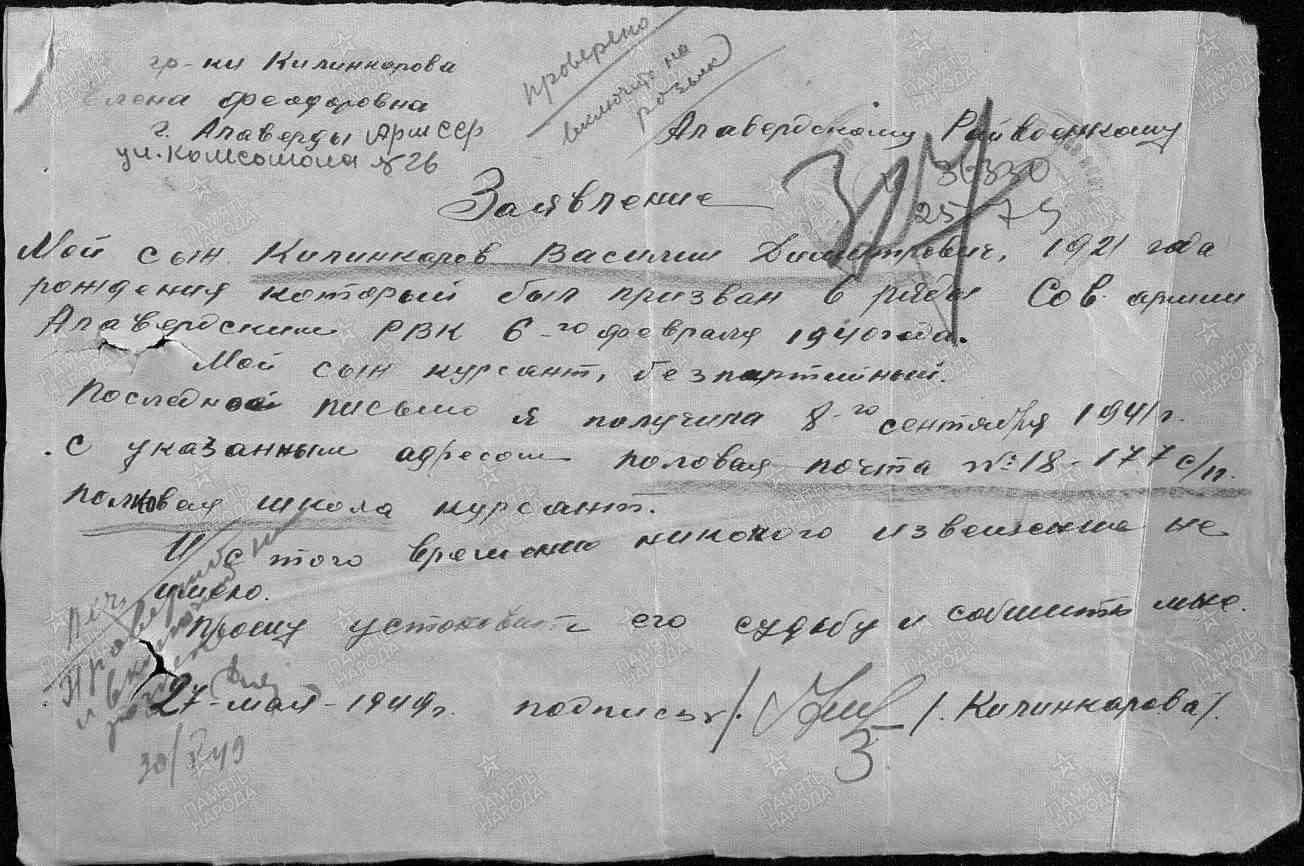 гр-ки Килинкарова
Елена Феодоровна
г. Алаверды Арм ССР
ул. Комсомола №26
проверено
включить на
розыск
Алавердскому Райвоенкому
36330
25
Заявление
Мой сын Килинкаров Василии Димитрович, 1921 года
рождения который был призван в ряды Сов. армии
Алавердским РВК 6-го февраля 1940 года.
Мой сын курсант, безпартийный.
Последное письмо я получила 8-го сентября 1941 г.
с указанным адресом половая почта №18-177 с/п.
полковая школа курсант.
И с того времени никокого извещения не
имею.
Прошу устоновить его судьбу и собшить мне.
27-мая-1949г. подпись /. /. Килинкарова/.
3
30/V 49
ПАМЯТЬ НАРОДА